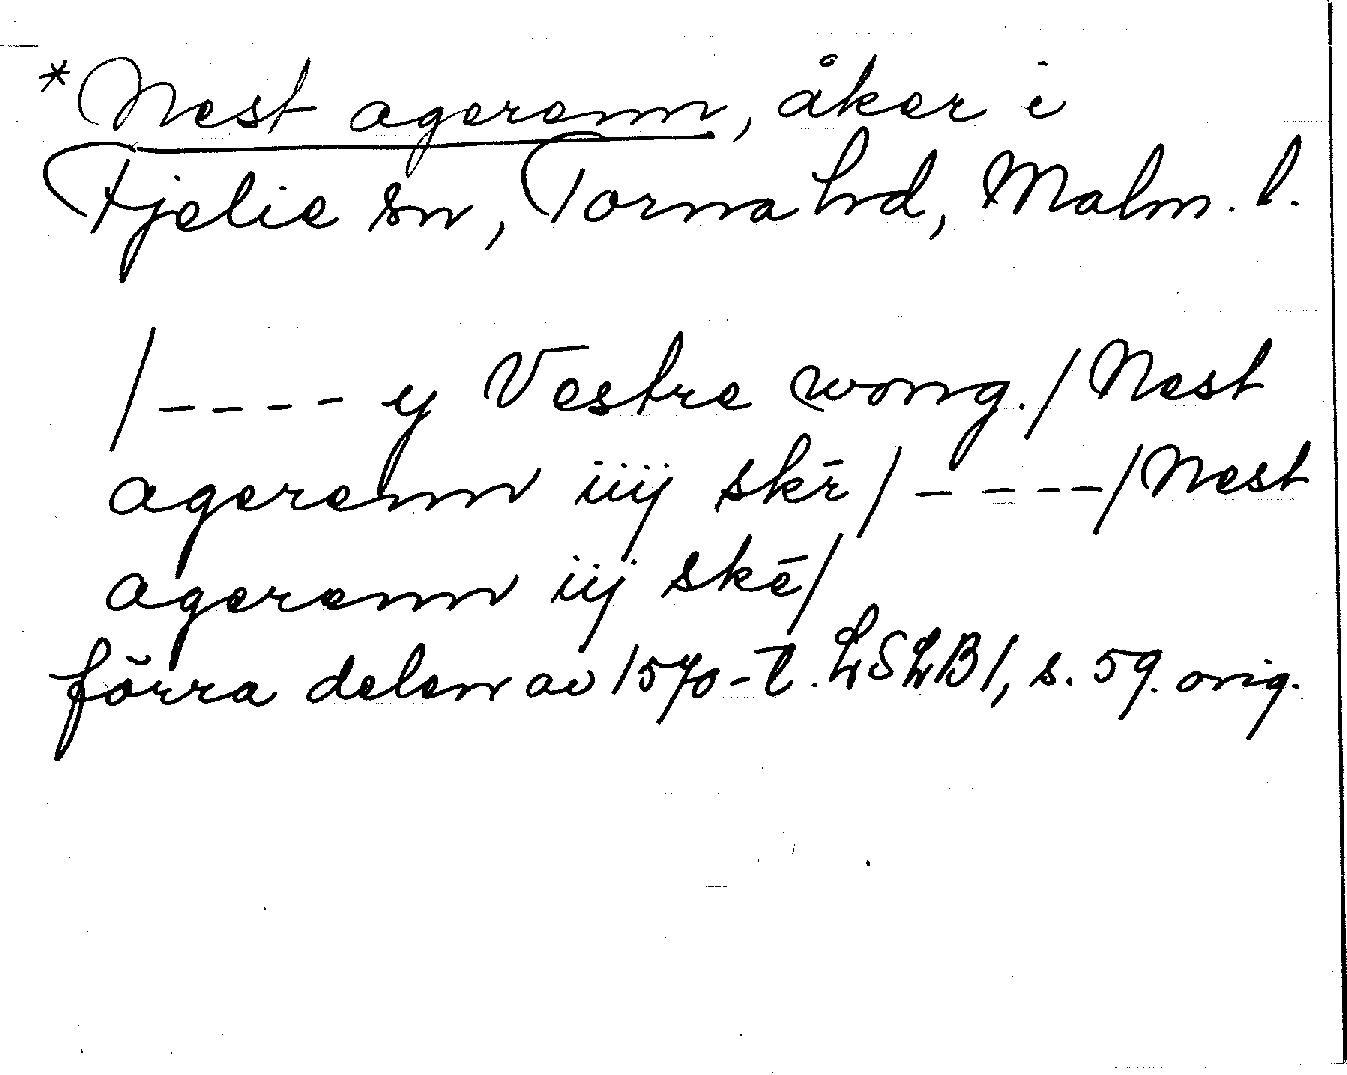 *Nest agerenn, åker i
Fjelie sn, Torna hd, Malm. l.
/---- y Vestre wong./Nest
agerenn iiij skē/----/Nest
agerenn iij skē/
förra delen av 1570-t. LSLB1, s. 59. orig.